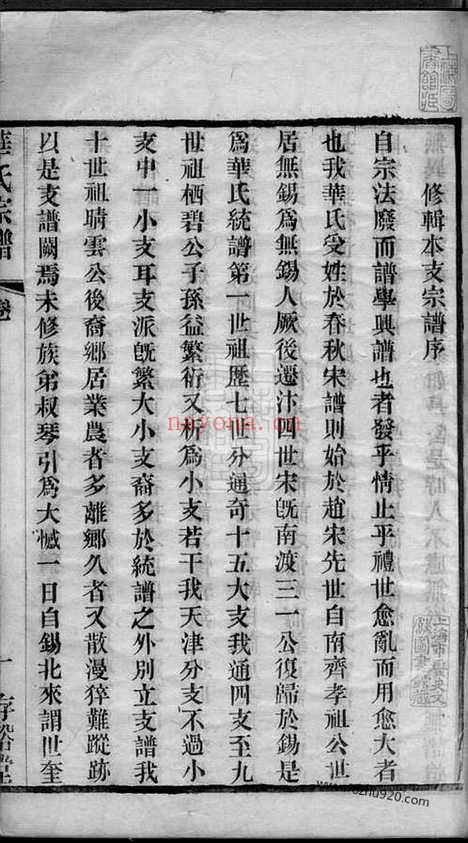 修輯本支宗譜序
自宗法廢而譜學興譜也者發乎情止乎禮世愈亂而用愈大者
也我華氏受姓於春秋宋譜則始於趙宋先世自南齊孝祖公世
居無錫爲無錫人厥後遷汴四世宋旣南渡三一公復歸於錫是
爲華氏統譜第一世祖歷七世分通奇十五大支我通四支至九
世祖栖碧公子孫益繁衍又析爲小支若干我天津分支不過小
支中一小支耳支派旣繁大小支裔多於統譜之外別立支譜我
十世祖晴雲公後裔鄉居業農者多離鄉久者又散漫猝難蹤跡
以是支譜闕焉未修族弟叔琴引爲大憾一日自錫北來謂世奎
華氏宗譜
卷
一
存裕堂
nayona.cn
www.kongfz